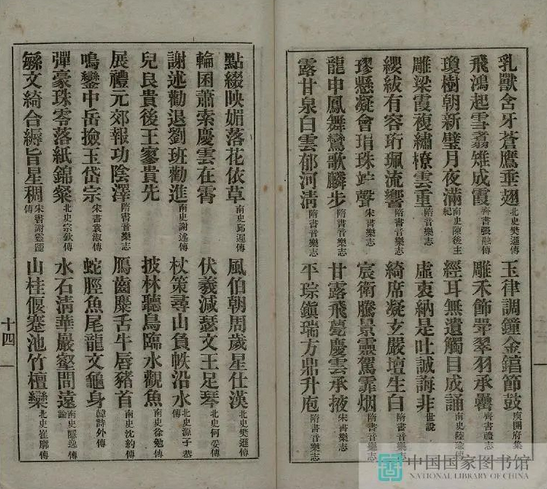 乳獸含牙蒼鷹垂翅 北史樊遜傳 玉律調鐘金錞節鼓 庾開府集
飛鴻起雪翥雉成霞 齊書張融傳 雕禾飾斝翠羽承罍 齊書禮志
瓊樹朝新璧月夜滿 南史陳後主紀 經耳無遺觸目成誦 南史陸
雕梁霞複繡橑雲重 隋書音樂志 虛衷納是吐誠誨非 世說
纓紱有容珩珮流響 隋書音樂志 綺席凝玄嚴壇生白 隋書音樂志
璆懸凝會琄珠竚聲 宋書樂志 宸衛騰景靈駕霏烟 宋書樂志
龍申鳳舞鸞歌麟步 隋書音樂志 甘露飛甍慶雲承掖 宋書樂志
露甘泉白雲郁河清 隋書音樂志 平琮鎮瑞方鼎升庖 隋書音樂志
點綴映媚落花依草 南史邱遲傳 風伯朝周歲星仕漢 北史樊遜傳
輪囷蕭索慶雲在霄 伏羲減瑟文王足琴 北史何妥傳
謝述勸退劉班勸進 南史謝述傳 杖策尋山負帙沿水 北史源子恭傳
兒良貴後王蓼貴先 披林聽鳥臨水觀魚 南史徐勉傳
展禮元郊報功陰澤 隋書音樂志 鴈齒麋舌牛唇豬首 南史沈約傳
鳴鑾中岳撿玉岱宗 宋書袁淑傳 蛇脛魚尾龍文龜身 韓詩外傳
彈豪珠零落紙錦粲 北史宗欽傳 水石清華巖壑閒遠 南史隱逸論
緜文綺合縟旨星稠 宋書謝靈運傳 山桂偃蹇池竹檀欒 北史崔廓傳
十四
中国国家图书馆
NATIONAL LIBRARY OF CHINA